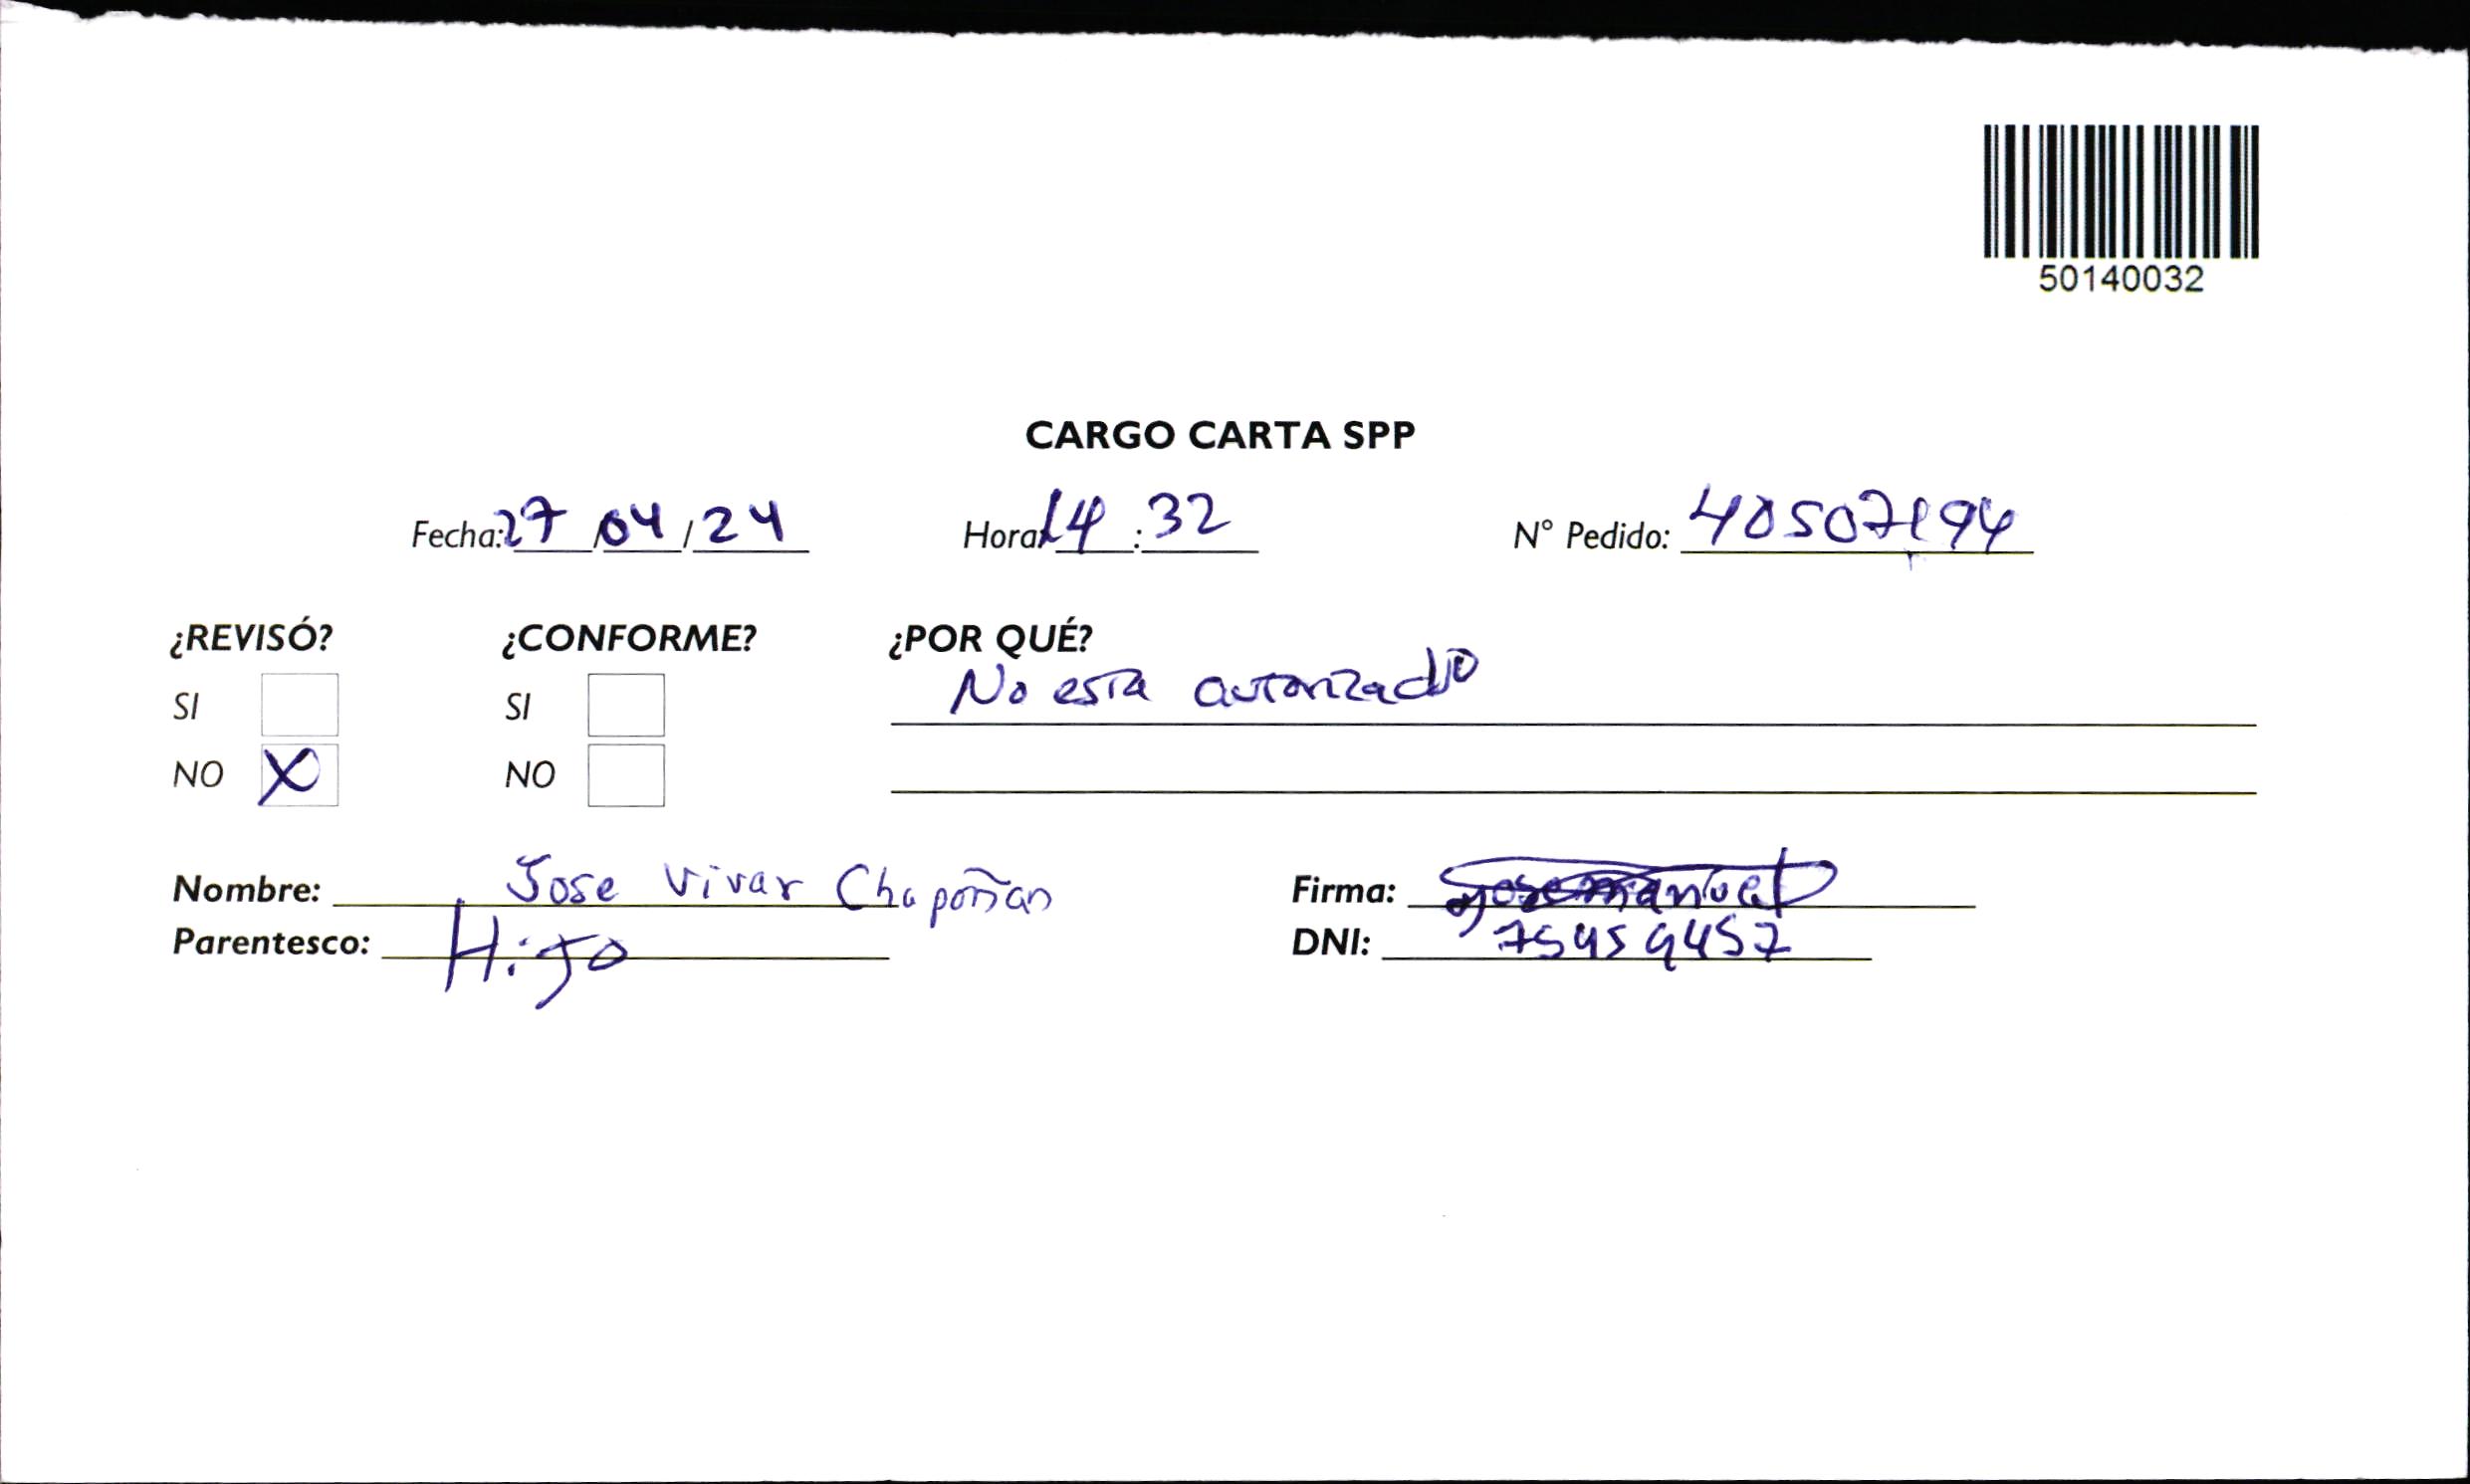 50140032
CARGO CARTA SPP
Fecha: 27/04/24 Hora: 14:32 N° Pedido: 40507194
¿REVISÓ? ¿CONFORME? ¿POR QUÉ?
SI SI No esta autorizado
NO X NO
Nombre: Jose Vivar Chapoñan Firma: Jose manuel
Parentesco: Hijo DNI: 75959457